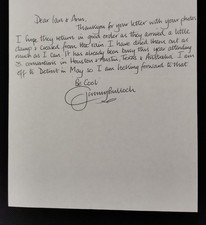 Dear Ian & Ann,
Thankyou for your letter with your photos
I hope they return in good order as they arrived, a little
damp & creased from the rain I have dried them out as
much as I can. It has already been busy this year attending
3 conventions in Houston & Austin, Texas & Australia. I am
off to Detroit in May so I am looking forward to that.
Be Cool
Jeremy Bulloch